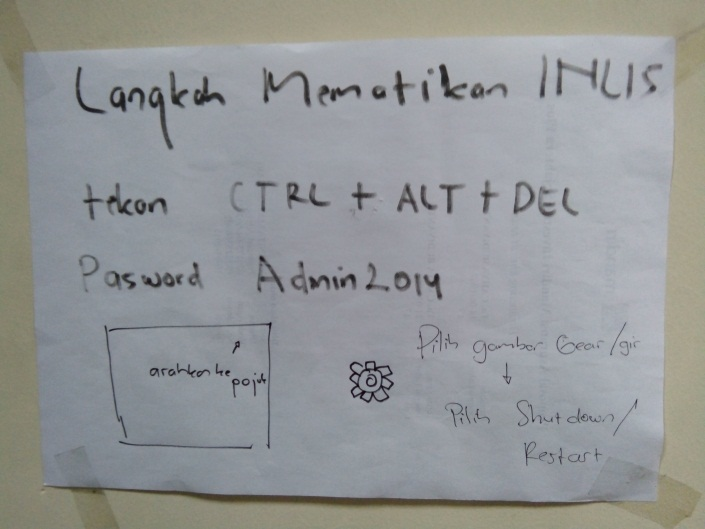 Langkah Mematikan INLIS
tekan CTRL + ALT + DEL
Pasword Admin2014
arahkan ke
pojok
Pilih gambar Gear/gir
↓
Pilih Shutdown/
Restart